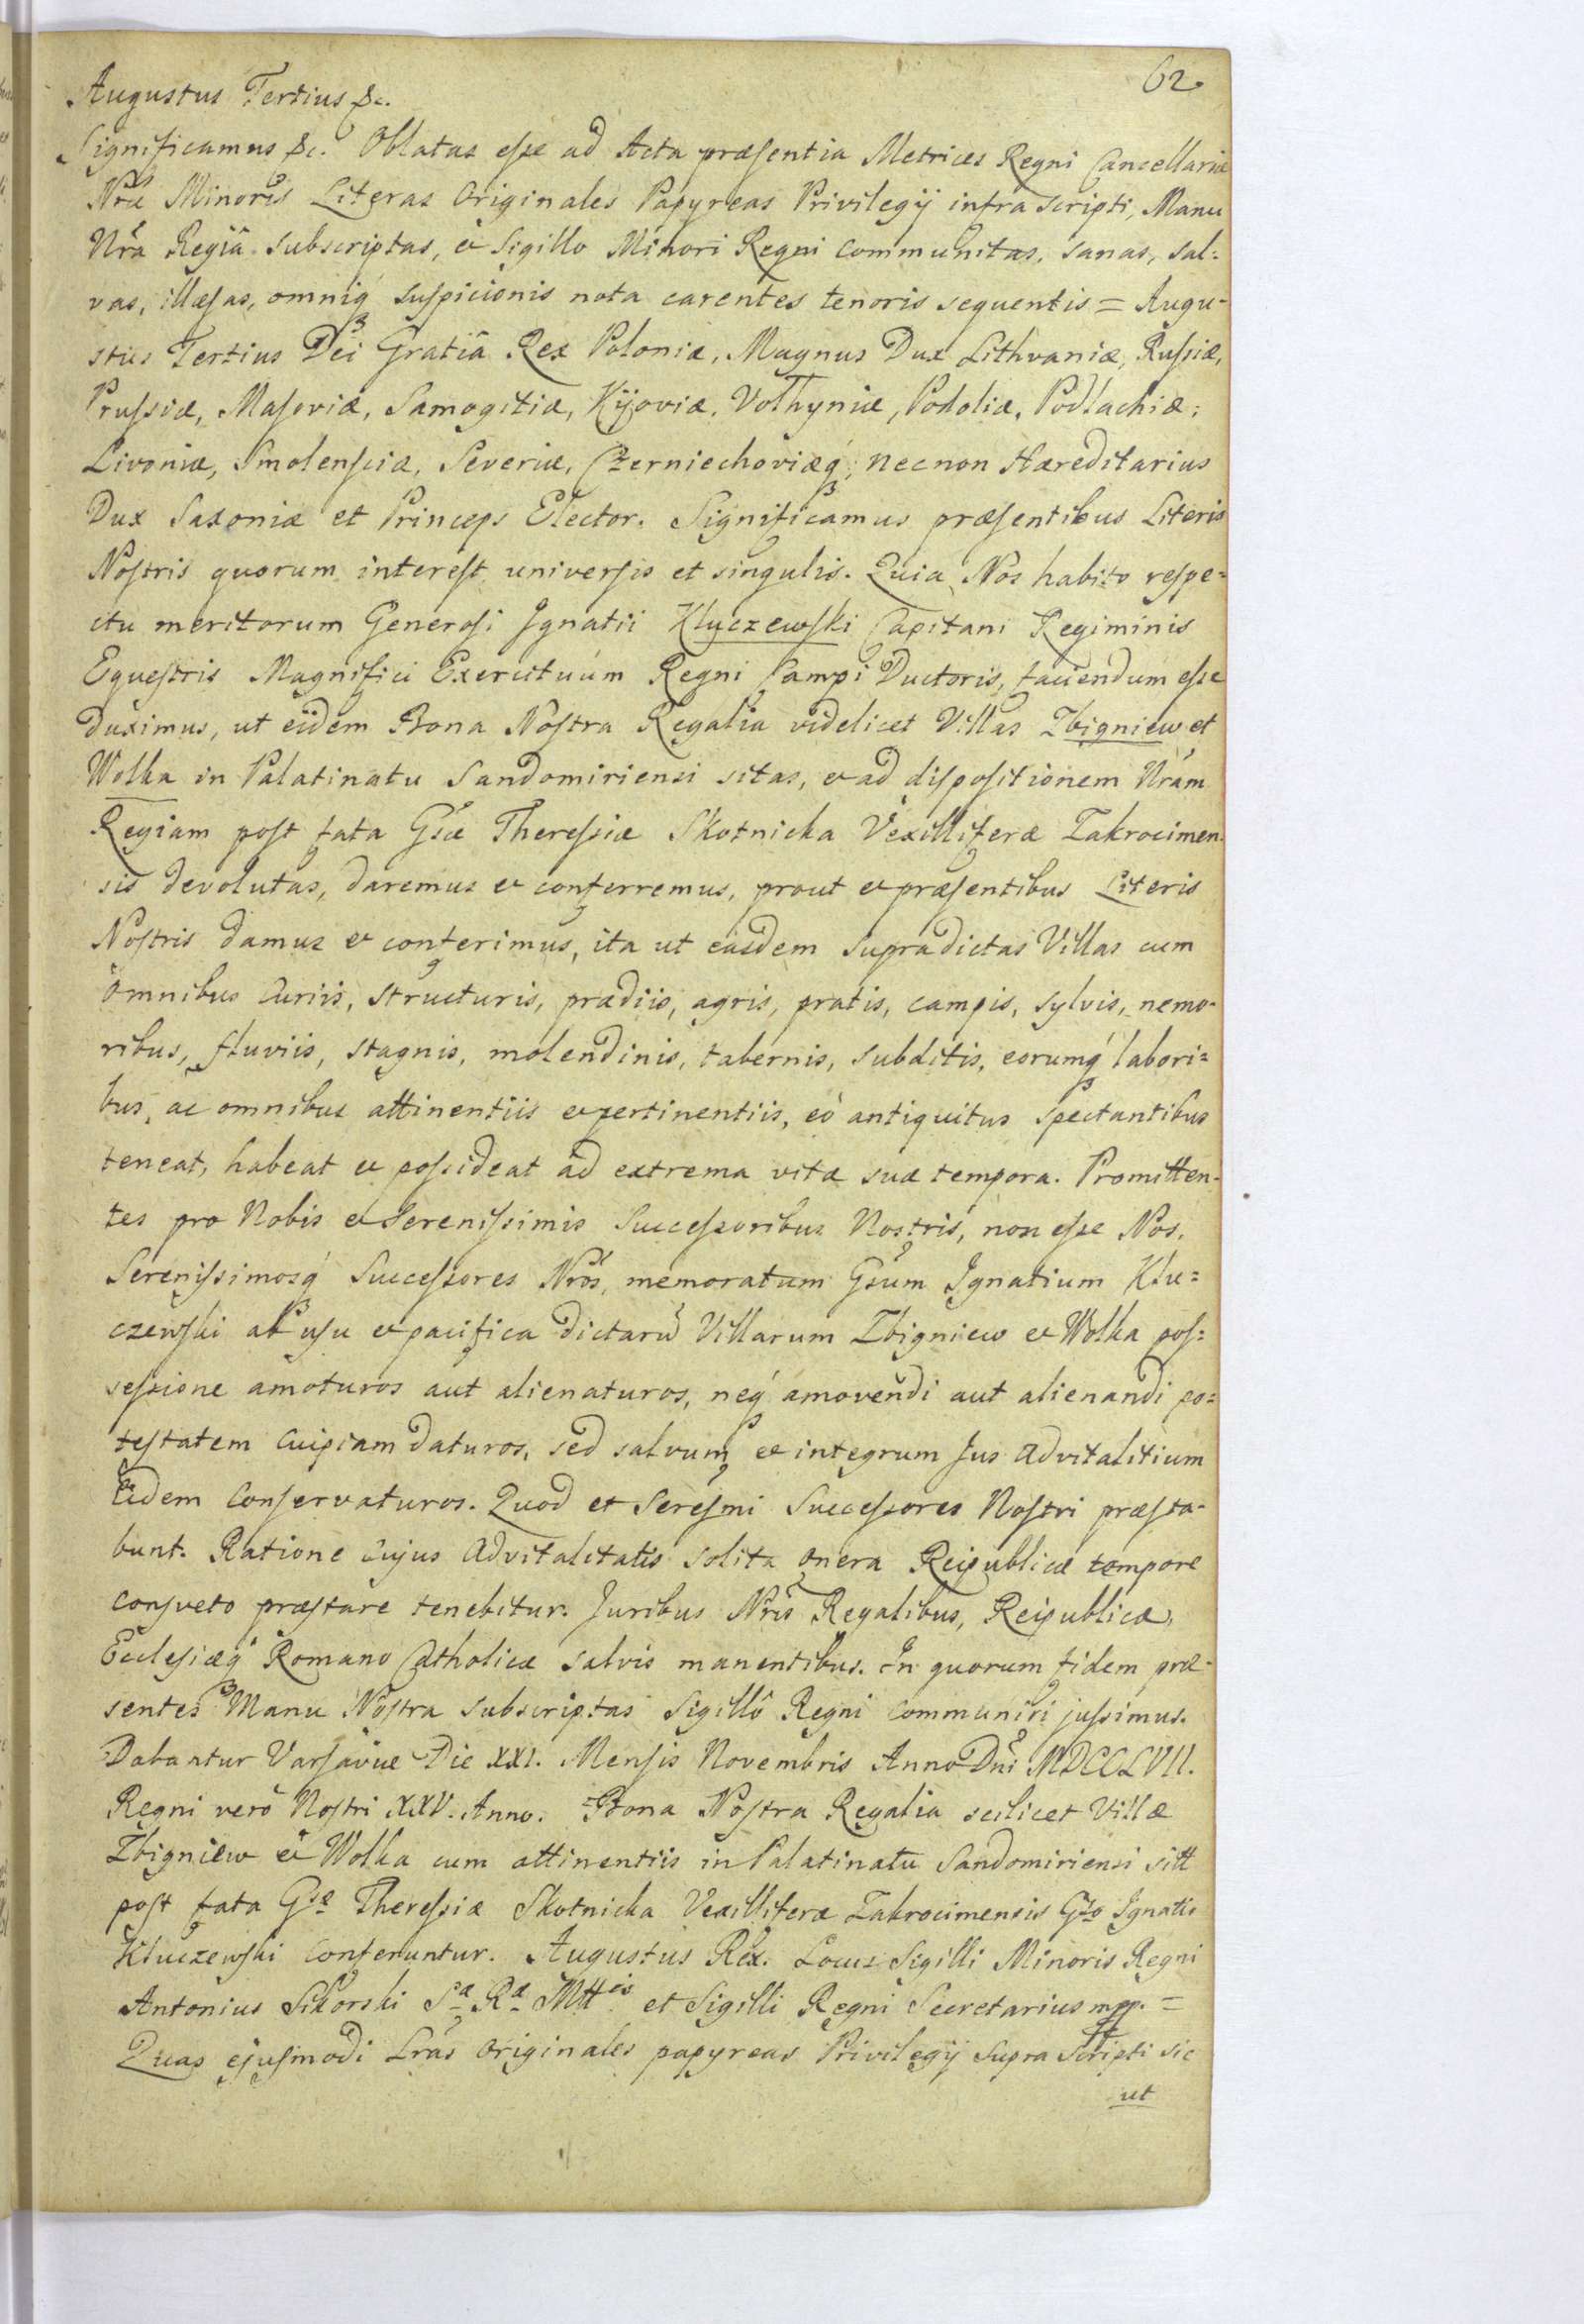 62.
Augustus Tertius &c.
Significamus &c. Oblatas eſse ad Acta præsentia Metrices Regni Cancellariæ
Nrǽ Minoris Literas Originales Papyreas Privilegÿ infra scripti, Manu
Nrâ Regiâ subscriptas, et Sigillo Minori Regni communitas, sanas, sal:
vas, illæsas, omniq́ suspicionis nota carentes tenoris sequentis = Augu-
stus Tertius Dei Gratiâ Rex Poloniæ, Magnus Dux Lithvaniæ, Ruſsiæ,
Pruſsiæ, Masoviæ, Samogitiæ, Kÿoviæ, Volhyniæ, Podoliæ, Podlachiæ,
Livoniæ, Smolensciæ, Severiæ, Czerniechoviæq́, necnon Hæreditarius
Dux Saxoniæ et Princeps Elector. Significamus præsentibus Literis
Nostris quorum interest universis et singulis. Quia Nos habito respe=
ctu meritorum Generosi Ignatii Kluczewski Capitani Regiminis
Equestris Magnifici Exercituum Regni Campi Ductoris, faciendum eſse
duximus, ut eidem Bona Nostra Regalia videlicet Villas Zbigniew et
Wolka in Palatinatu Sandomiriensi sitas, et ad dispositionem Nrám
Regiam post fata Gsæ Theresiæ Skotnicka Vexilliferæ Zakrocimen-
sis devolutas, daremus et conferremus, prout et præsentibus Literis
Nostris damus et conferimus, ita ut easdem supradictas Villas cum
omnibus Curiis, structuris, prædiis, agris, pratis, campis, sylvis, nemo-
ribus, fluviis, stagnis, molendinis, tabernis, subditis, eorumq́ labori=
bus, ac omnibus attinentiis et pertinentiis, eò antiquitus spectantibus
teneat, habeat et poſsideat ad extrema vitæ suæ tempora. Promitten-
tes pro Nobis et Sereniſsimis Succeſsoribus Nostris, non eſse Nos,
Sereniſsimosq́ Succeſsores Nrós, memoratum Gsum Ignatium Klu=
czewski ab usu et pacifica dictarū Villarum Zbigniew et Wolka pos=
seſsione amoturos aut alienaturos, neq́ amovendi aut alienandi po=
testatem cuipiam daturos, sed salvum et integrum Jus advitalitium
Eidem conservaturos. Quod et Seresmi Succeſsores Nostri præsta-
bunt. Ratione cujus advitalitatis solita onera Reipublicæ tempore
consveto præstare tenebitur. Juribus Nris Regalibus, Reipublicæ,
Ecclesiæq́ Romano Catholicæ salvis manentibus. In quorum fidem præ-
sentes Manu Nostra subscriptas Sigillô Regni communiri juſsimus.
Dabantur Varsaviæ Die XXI. Mensis Novembris Anno Dni MDCCLVII.
Regni verò Nostri XXV. Anno. Bona Nostra Regalia scilicet Villæ
Zbigniew et Wolka cum attinentiis in Palatinatu Sandomiriensi sitt
post fata Gsæ Theresiæ Skotnicka Vexilliferæ Zakrocimensis Gso Ignatio
Kluczewski conferuntur. Augustus Rex. Locus Sigilli Minoris Regni
Antonius Sikorski Sæ Ræ Mttis et Sigilli Regni Secretarius mpp. =
Quas ejusmodi Lrás Originales papyreas Privilegÿ supra scripti sic
ut